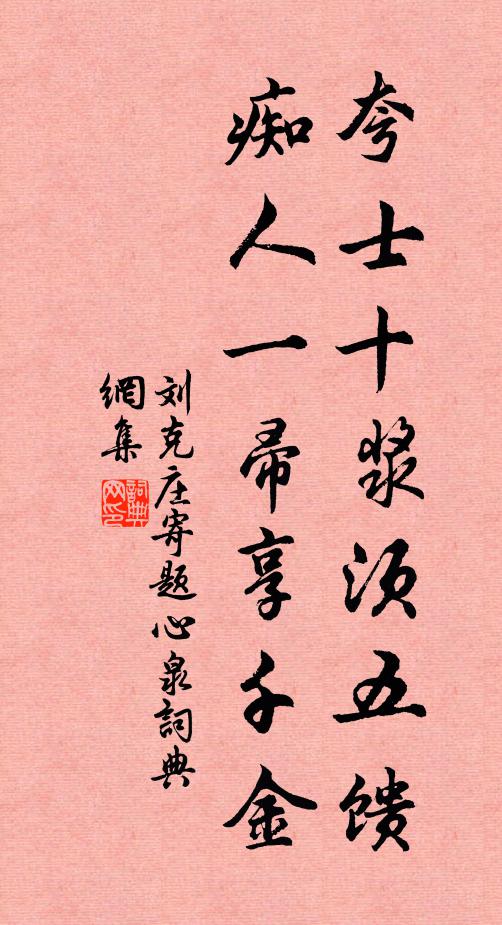 夸士十浆须五馈
痴人一帚享千金
刘克庄寄题心泉詞典
網集
詞典網印